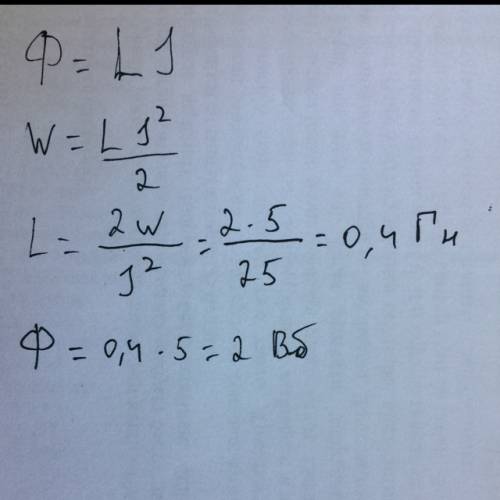 Ф = L J
W = L J² / 2
L = 2W / J² = 2 · 5 / 25 = 0,4 Гн
Ф = 0,4 · 5 = 2 Вб